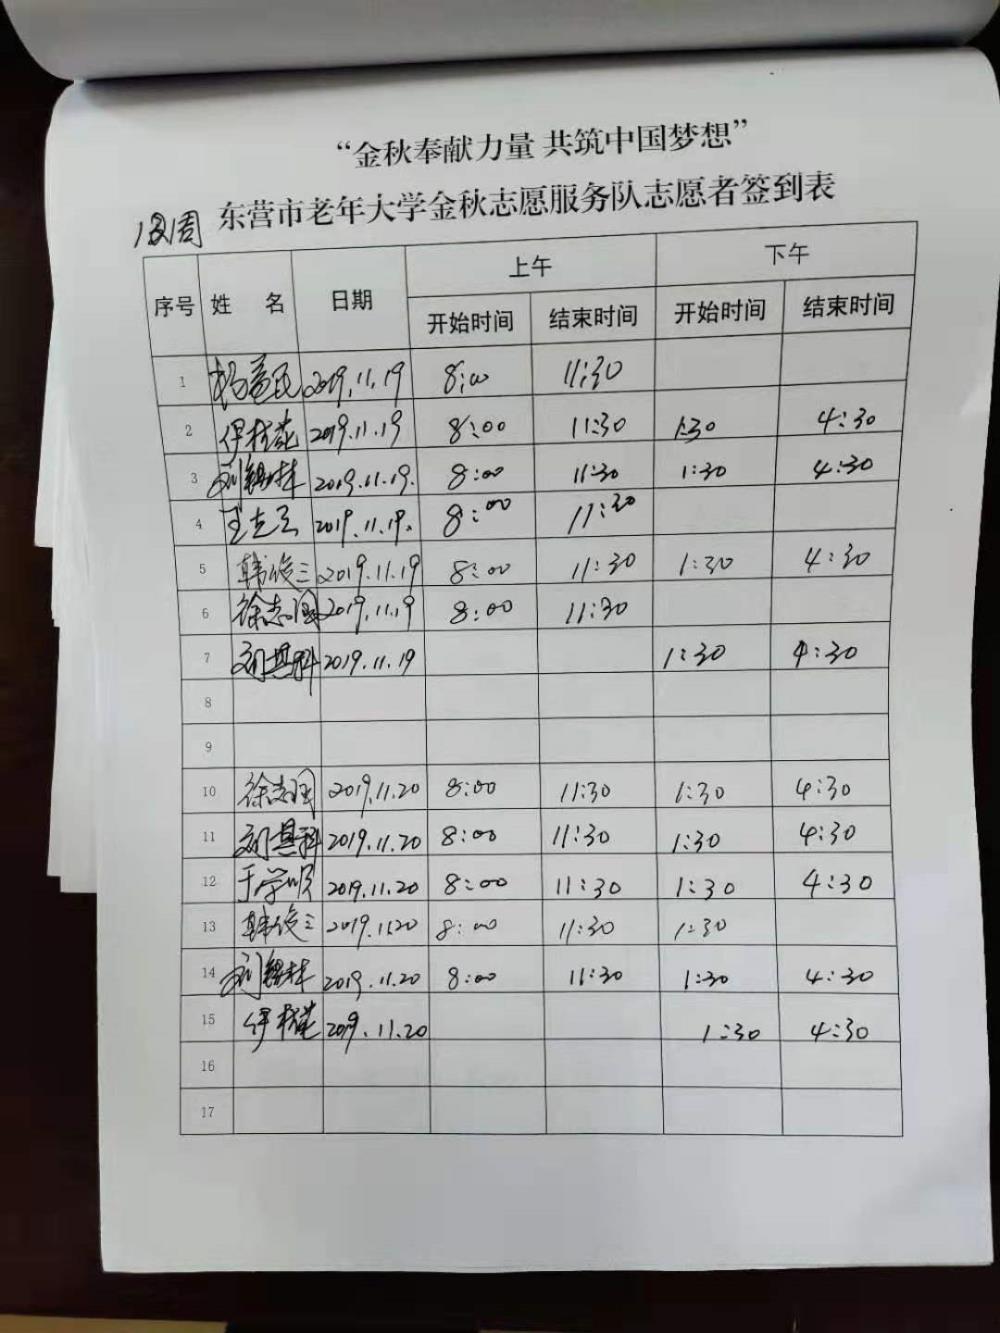 “金秋奉献力量 共筑中国梦想”
东营市老年大学金秋志愿服务队志愿者签到表
周
序号 姓 名 日期 上午 下午
开始时间 结束时间 开始时间 结束时间
1 2019.11.19 8:00 11:30
2 伊桂花 2019.11.19 8:00 11:30 1:30 4:30
3 刘锡林 2019.11.19. 8:00 11:30 1:30 4:30
4 2019.11.19. 8:00 11:30
5 韩俊三 2019.11.19 8:00 11:30 1:30 4:30
6 徐志国 2019.11.19 8:00 11:30
7 刘其科 2019.11.19 1:30 4:30
8
9
10 徐志国 2019.11.20 8:00 11:30 1:30 4:30
11 刘其科 2019.11.20 8:00 11:30 1:30 4:30
12 于学顺 2019.11.20 8:00 11:30 1:30 4:30
13 韩俊三 2019.11.20 8:00 11:30 1:30
14 刘锡林 2019.11.20 8:00 11:30 1:30 4:30
15 伊桂花 2019.11.20 1:30 4:30
16
17